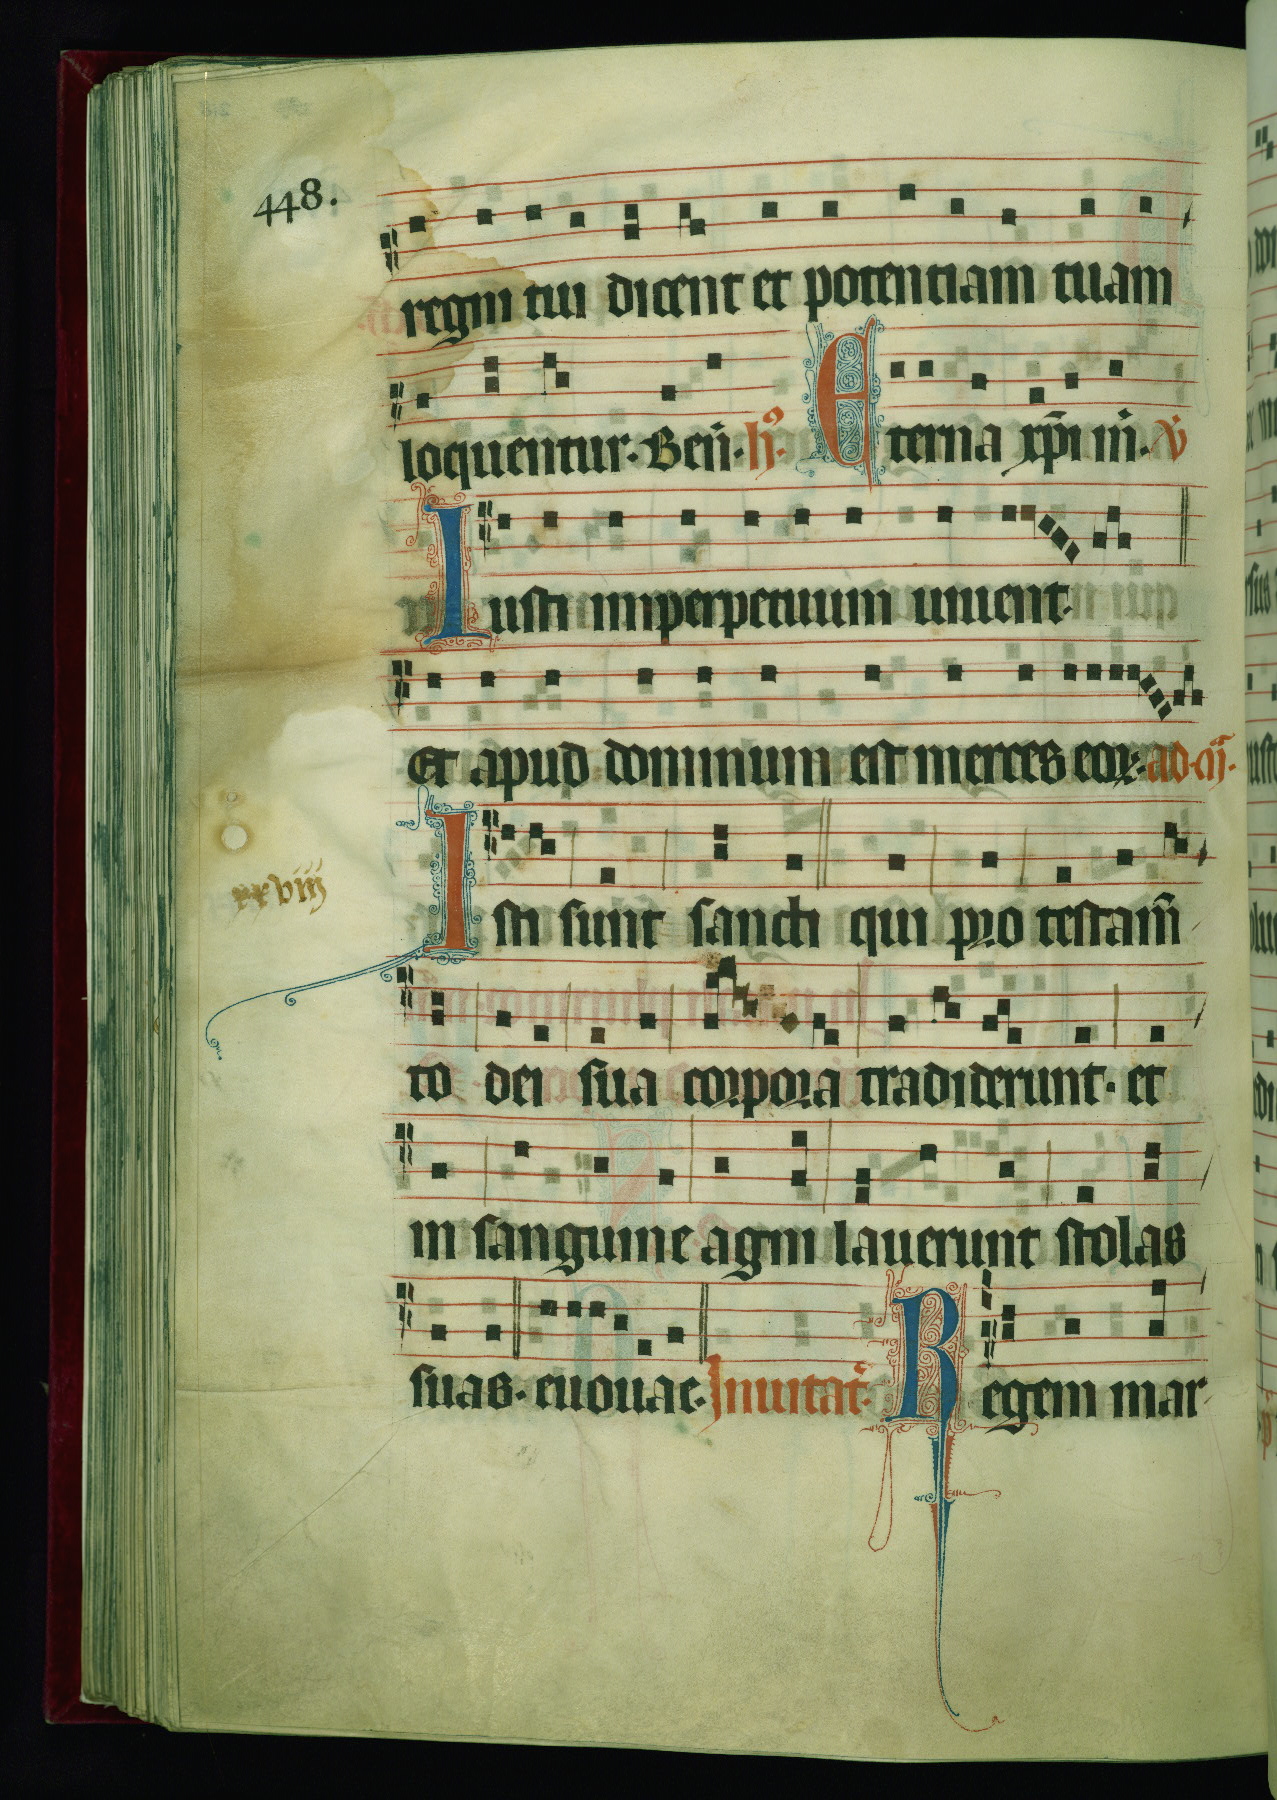 448.
regni tui dicent et potentiam tuam
loquentur. Ben̄. h̄9. Eterna xp̄i m̄. v̄
Iusti imperpetuum uiuent.
Et apud dominum est merces eoꝝ. ad. m̄.
xxviij
Isti sunt sancti qui pro testam̄
to dei sua corpora tradiderunt. et
in sanguine agni lauerunt stolas
suas. euouae. Inuitat̄. Regem mar